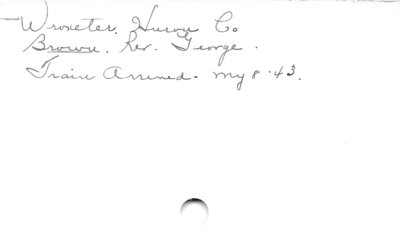 Wroxeter. Huron Co
Brown. Rev. George.
Train Arrived - My 8 '43.